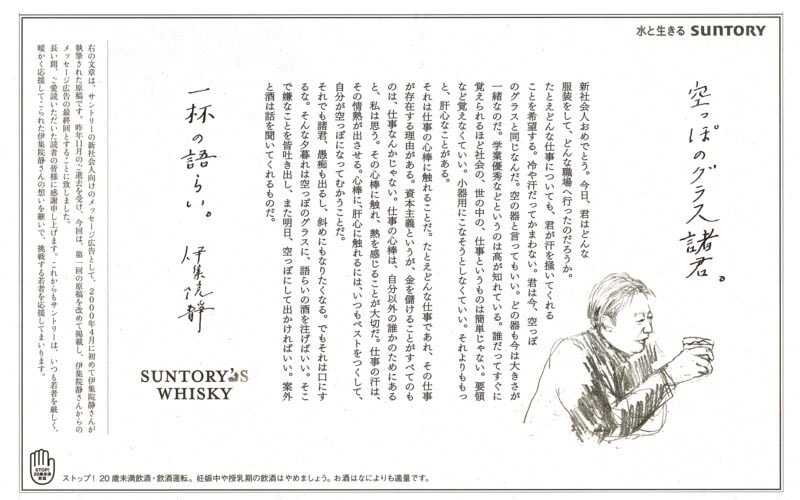 水と生きる SUNTORY
空っぽのグラス諸君。
新社会人おめでとう。今日、君はどんな
服装をして、どんな職場へ行ったのだろうか。
たとえどんな仕事についても、君が汗を掻いてくれる
ことを希望する。冷や汗だってかまわない。君は今、空っぽ
のグラスと同じなんだ。空の器と言ってもいい。どの器も今は大きさが
一緒なのだ。学業優秀などというのは高が知れている。誰だってすぐに
覚えられるほど社会の、世の中の、仕事というものは簡単じゃない。要領
など覚えなくていい。小器用にこなそうとしなくていい。それよりももっ
と、肝心なことがある。
それは仕事の心棒に触れることだ。たとえどんな仕事であれ、その仕事
が存在する理由がある。資本主義というが、金を儲けることがすべてのも
のは、仕事なんかじゃない。仕事の心棒は、自分以外の誰かのためにある
と、私は思う。その心棒に触れ、熱を感じることが大切だ。仕事の汗は、
その情熱が出させる。心棒に、肝心に触れるには、いつもベストをつくして、
自分が空っぽになってむかうことだ。
それでも諸君、愚痴も出るし、斜めにもなりたくなる。でもそれは口にす
るな。そんな夕暮れは空っぽのグラスに、語らいの酒を注げばいい。そこ
で嫌なことを皆吐き出し、また明日、空っぽにして出かければいい。案外
と酒は話を聞いてくれるものだ。
一杯の語らい。
伊集院静
SUNTORY'S
WHISKY
右の文章は、サントリーの新社会人向けのメッセージ広告として、2000年4月に初めて伊集院静さんが
執筆された原稿です。昨年11月のご逝去を受け、今回は、第一回の原稿を改めて掲載し、伊集院静さんからの
メッセージ広告の最終回とすることに致しました。
長い間、ご愛読いただいた読者の皆様に感謝申し上げます。これからもサントリーは、いつも若者を厳しく、
暖かく応援してこられた伊集院静さんの想いを継いで、挑戦する若者を応援してまいります。
STOP!
20歳未満
飲酒
ストップ! 20歳未満飲酒・飲酒運転。妊娠中や授乳期の飲酒はやめましょう。お酒はなによりも適量です。